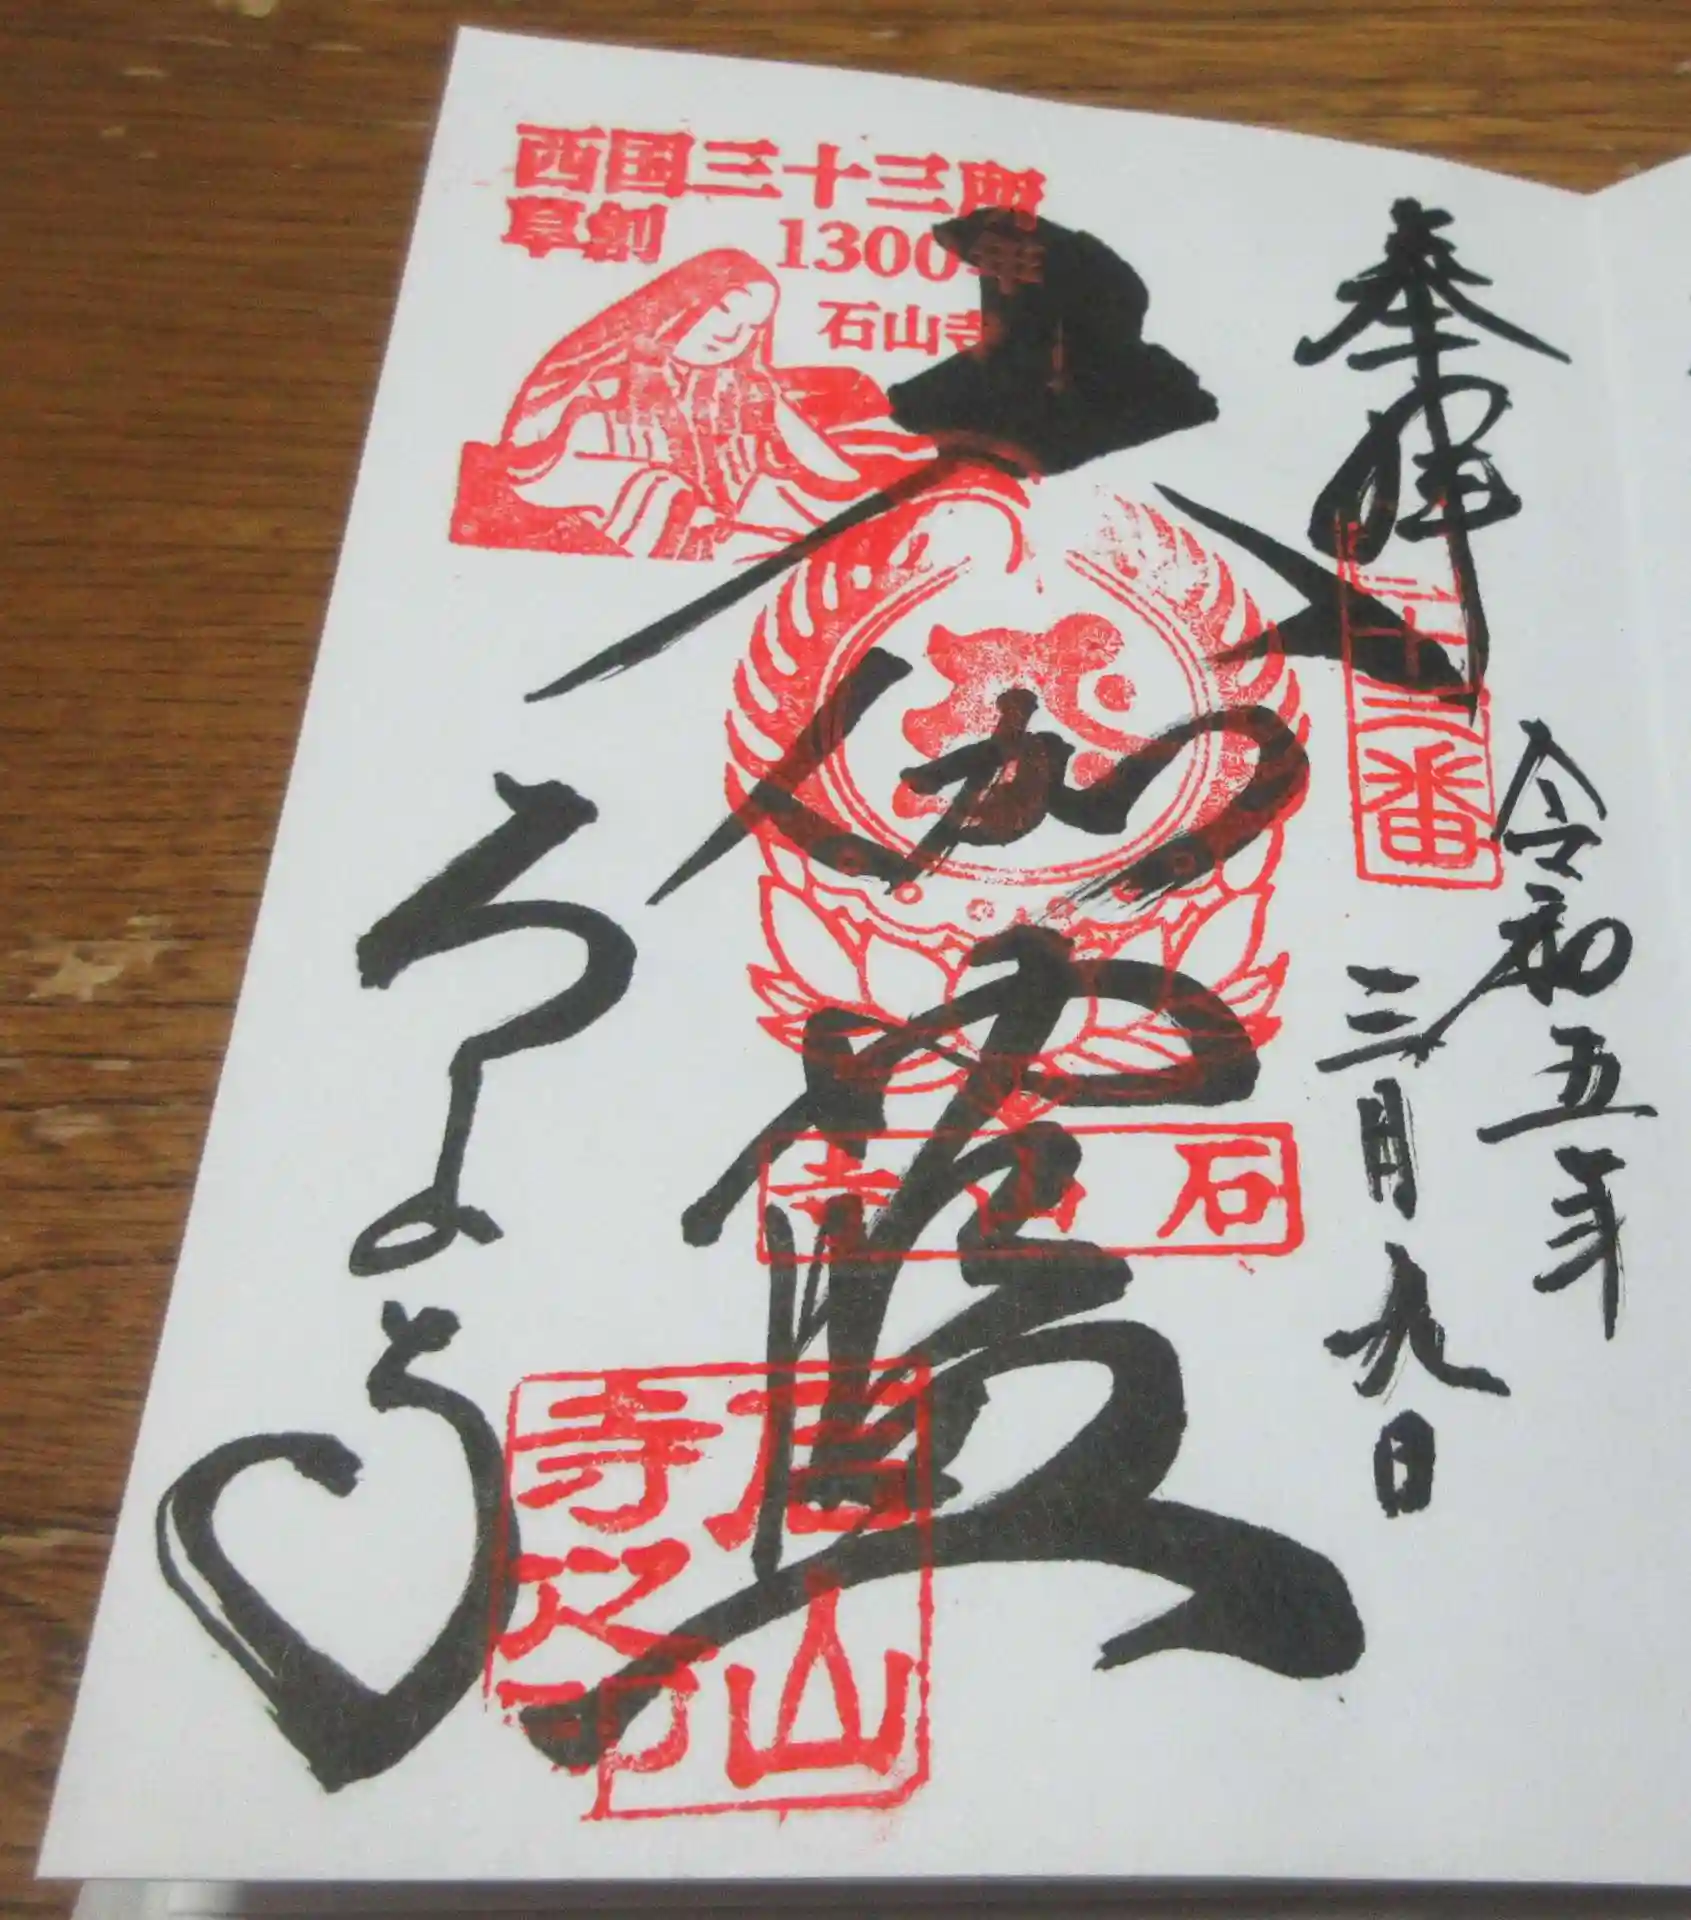 奉拝
十三番
令和五年
三月九日
西国三十三所
草創 1300年
石山寺
大伽藍
石山寺
石山寺
石山寺之印